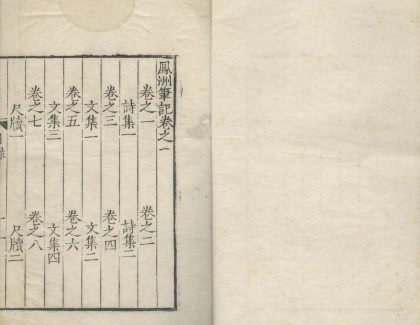 鳳洲筆記卷之一
卷之一 卷之二
詩集一 詩集二
卷之三 卷之四
文集一 文集二
卷之五 卷之六
文集三 文集四
卷之七 卷之八
尺牘一 尺牘二
目錄 一